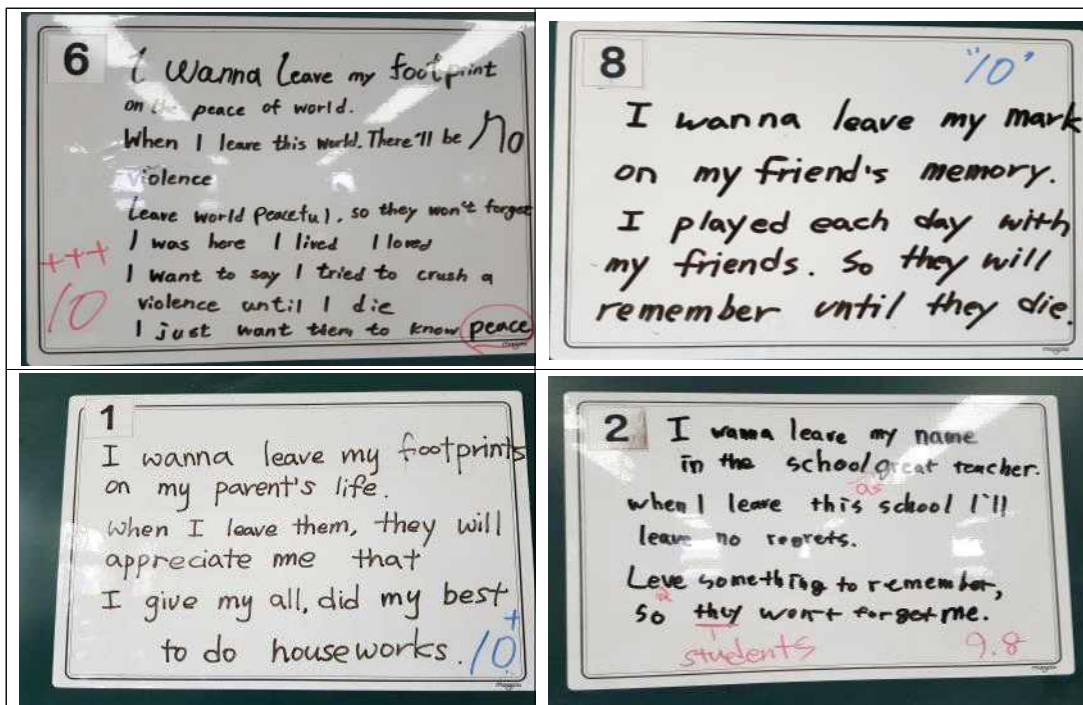 6
I wanna leave my footprint
on the peace of world.
When I leave this world. There'll be No
violence
Leave world peaceful, so they won't forget
I was here I lived I loved
I want to say I tried to crush a
violence until I die
I just want them to know peace
+++
10
8
"10"
I wanna leave my mark
on my friend's memory.
I played each day with
my friends. So they will
remember until they die.
1
I wanna leave my footprints
on my parent's life.
When I leave them, they will
appreciate me that
I give my all, did my best
to do houseworks.
10+
2
I wanna leave my name
in the school great teacher.
as
when I leave this school I'll
leave no regrets.
Leve something to remember,
a
so they won't forget me.
students
9.8